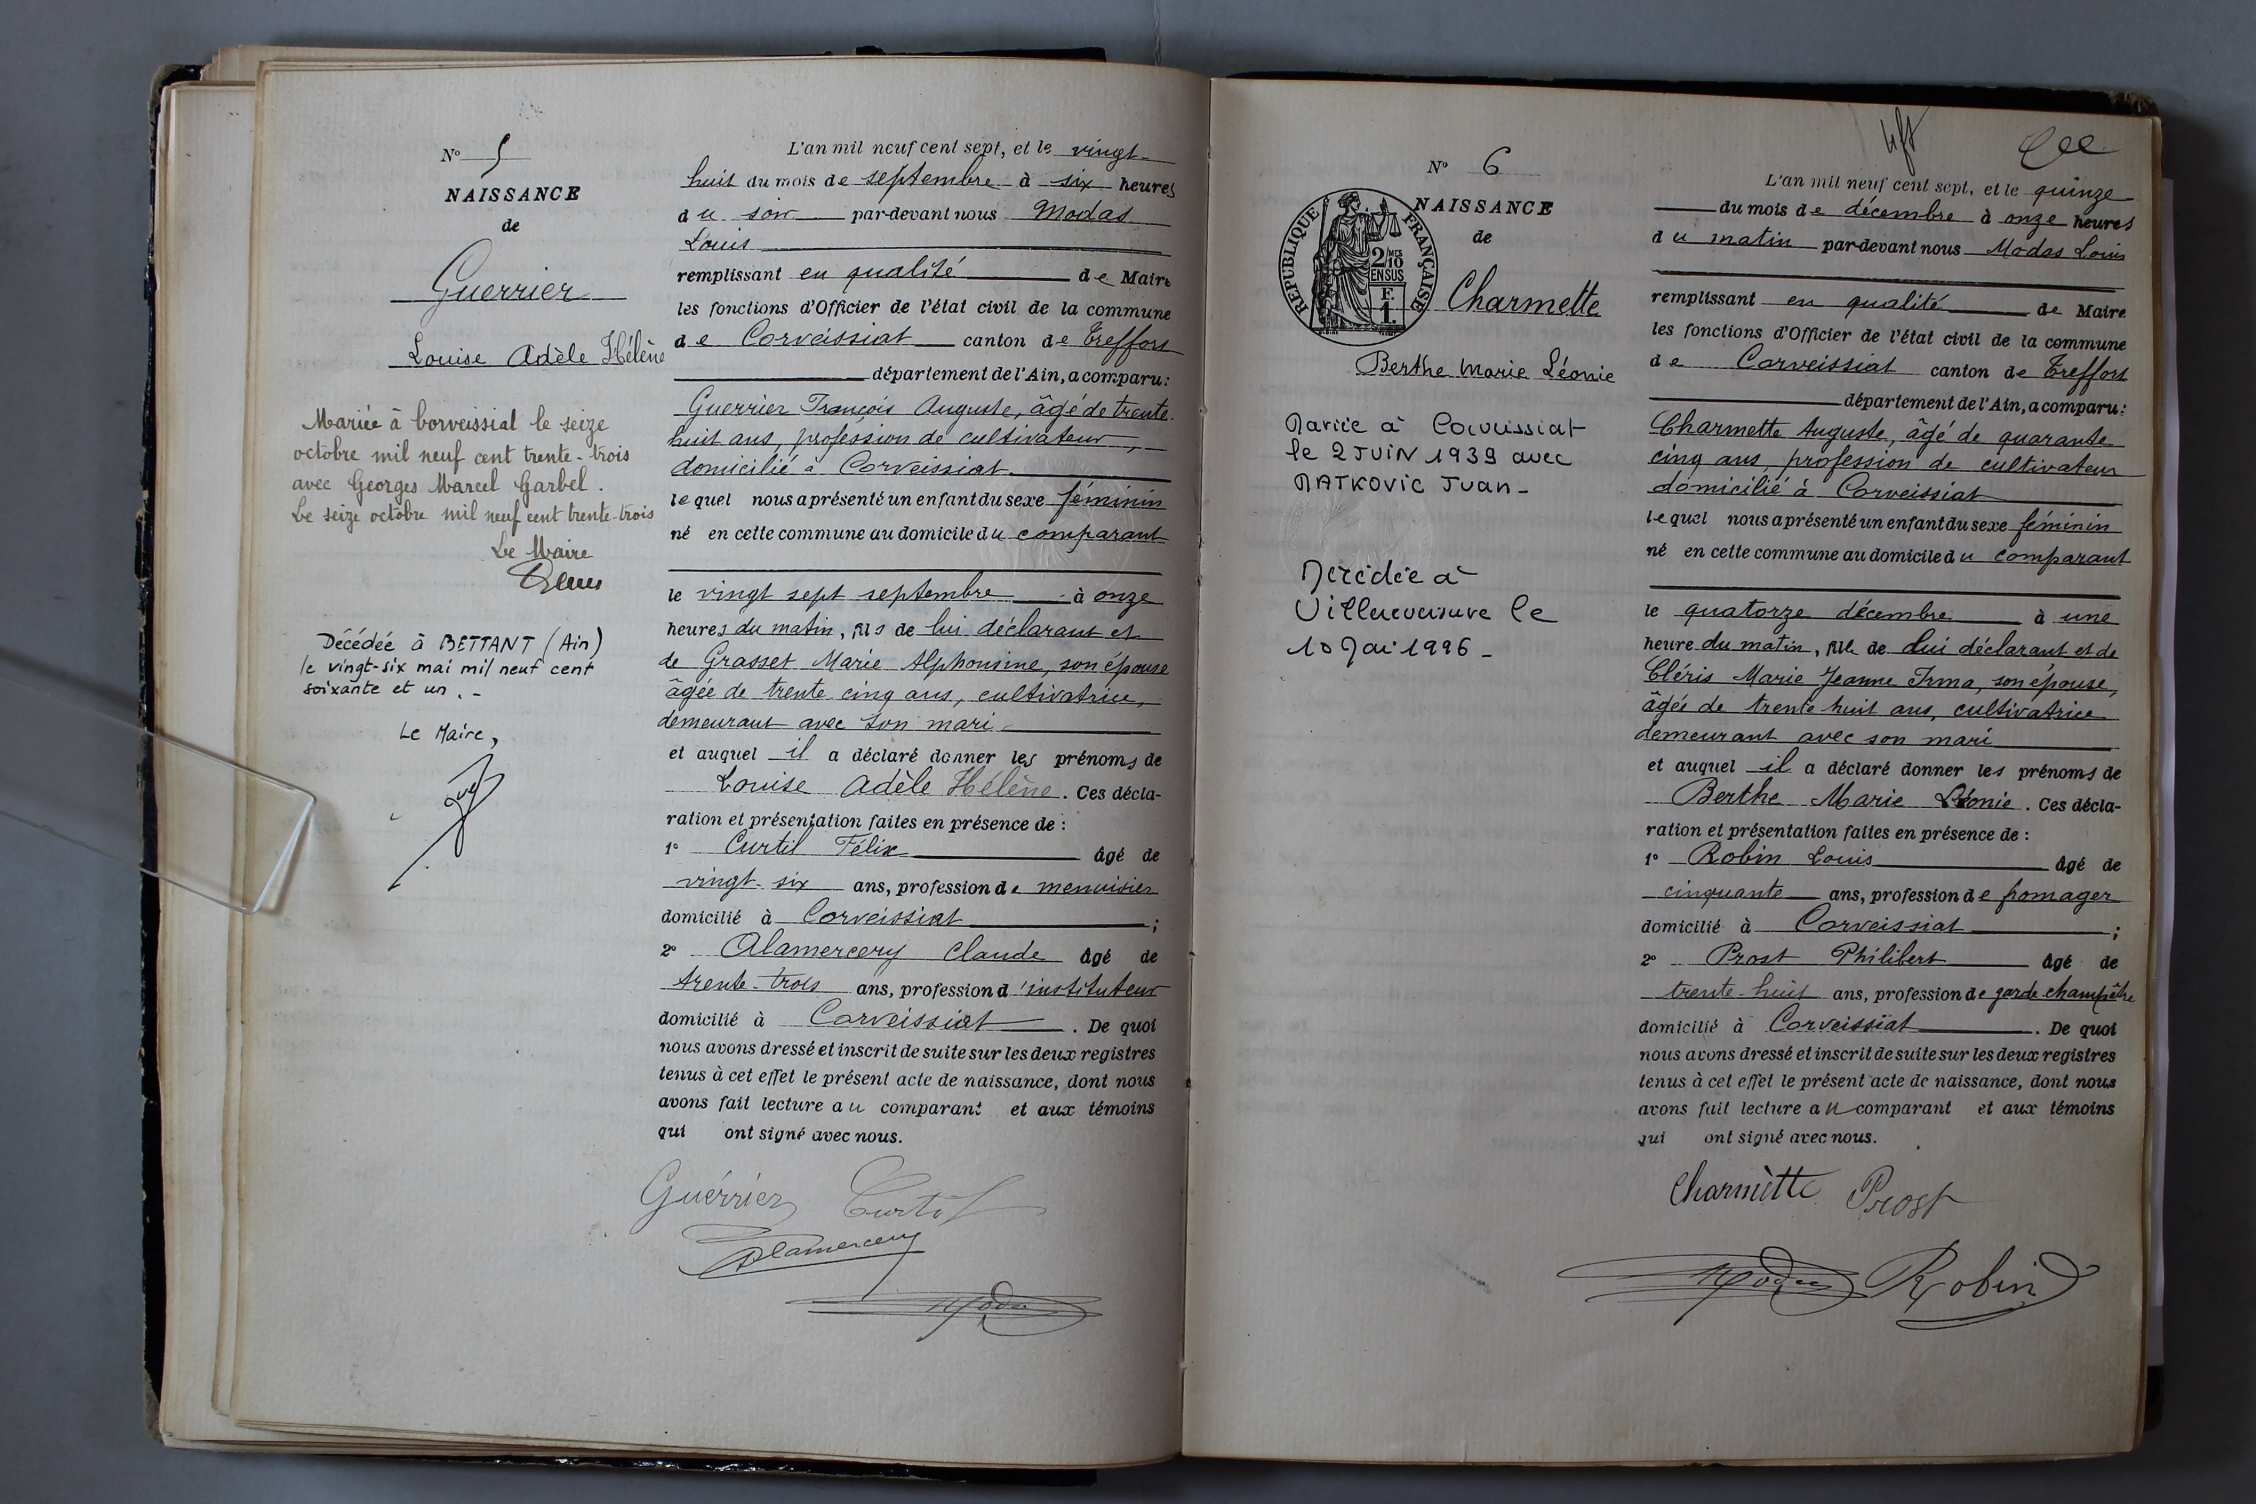 N° 5
NAISSANCE
de
Guerrier
Louise Adèle Hélène
Mariée à Corveissiat le seize
octobre mil neuf cent trente-trois
avec Georges Marcel Garbel.
Le seize octobre mil neuf cent trente-trois
Le Maire
Décédée à BETTANT (Ain)
le vingt-six mai mil neuf cent
soixante et un. -
Le Maire,
L'an mil neuf cent sept, et le vingt
huit du mois de septembre à six heures
du soir par-devant nous Modas
Louis
remplissant en qualité de Maire
les fonctions d'Officier de l'état civil de la commune
de Corveissiat canton de Treffort
département de l'Ain, a comparu:
Guerrier François Auguste, âgé de trente-
huit ans, profession de cultivateur,
domicilié à Corveissiat
lequel nous a présenté un enfant du sexe féminin
né en cette commune au domicile du comparant
le vingt sept septembre à onze
heures du matin, fils de lui déclarant et
de Grasset Marie Alphonsine, son épouse
âgée de trente cinq ans, cultivatrice,
demeurant avec son mari
et auquel il a déclaré donner les prénoms de
Louise Adèle Hélène. Ces décla-
ration et présentation faites en présence de :
1° Curtil Félix âgé de
vingt-six ans, profession de menuisier
domicilié à Corveissiat ;
2° Alamercery Claude âgé de
trente-trois ans, profession d'instituteur
domicilié à Corveissiat. De quoi
nous avons dressé et inscrit de suite sur les deux registres
tenus à cet effet le présent acte de naissance, dont nous
avons fait lecture au comparant et aux témoins
qui ont signé avec nous.
Guérrier Curtil
Alamercery
Modas
N° 6
NAISSANCE
de
REPUBLIQUE FRANÇAISE
2/10 MES
EN SUS
F.
1.
Charmette
Berthe Marie Léonie
Mariée à Corveissiat
le 2 JUIN 1939 avec
MATKOVIC Ivan -
Décédée à
Villereversure le
10 Mai 1996 -
L'an mil neuf cent sept, et le quinze
du mois de décembre à onze heures
du matin par-devant nous Modas Louis
remplissant en qualité de Maire
les fonctions d'Officier de l'état civil de la commune
de Corveissiat canton de Treffort
département de l'Ain, a comparu:
Charmette Auguste, âgé de quarante
cinq ans, profession de cultivateur
domicilié à Corveissiat
lequel nous a présenté un enfant du sexe féminin
né en cette commune au domicile du comparant
le quatorze décembre à une
heure du matin, fille de lui déclarant et de
Cléris Marie Jeanne Irma, son épouse,
âgée de trente huit ans, cultivatrice
demeurant avec son mari
et auquel il a déclaré donner les prénoms de
Berthe Marie Léonie. Ces décla-
ration et présentation faites en présence de :
1° Robin Louis âgé de
cinquante ans, profession de fromager
domicilié à Corveissiat ;
2° Prost Philibert âgé de
trente-huit ans, profession de garde champêtre
domicilié à Corveissiat. De quoi
nous avons dressé et inscrit de suite sur les deux registres
tenus à cet effet le présent acte de naissance, dont nous
avons fait lecture au comparant et aux témoins
qui ont signé avec nous.
Charmette Prost
Modas Robin